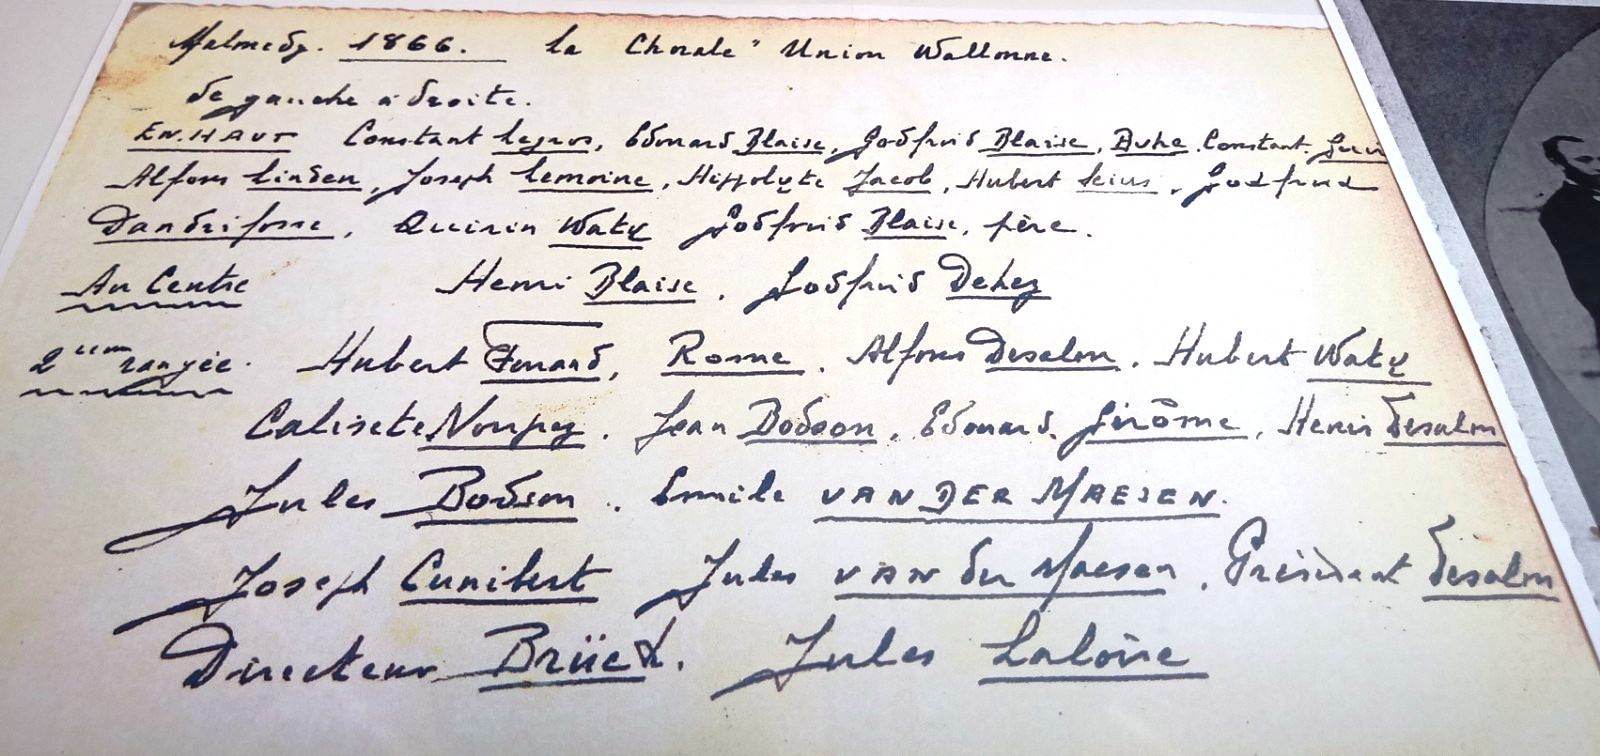 Malmedy. 1866. La Chorale "Union Wallonne.
de gauche à droite.
EN.HAUT Constant Legros, Edouard Blaise, Godfroid Blaise, Buhe. Constant.
Alfons Linden, Joseph Lemoine, Hippolyte Jacob, Hubert, Godfroid
Dandrifosse, Quirin Waty Godfroid Blaise, père.
Au Centre Henri Blaise, Godfroid Dehez
2ième rangée. Hubert, Rome, Alfons Desalm, Hubert Waty
Calixte Noupez. Jean Bodson, Edouard. Gérôme, Henri Desalm
Jules Bodson. Emile VAN DER MAESEN.
Joseph Cunibert Jules van der Maesen, Président Desalm
Directeur Brück. Jules Laloire